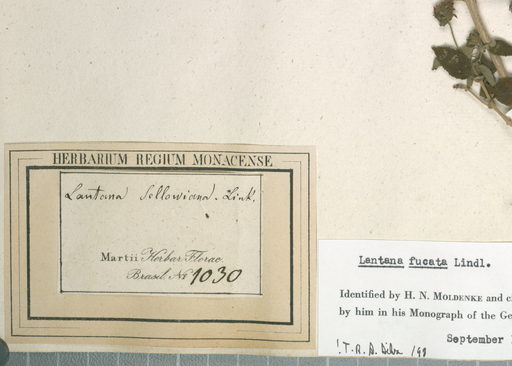 HERBARIUM REGIUM MONACENSE
Lantana Sellowiana. Link.
Martii Herbar. Florae
Brasil. No 1030
Lantana fucata Lindl.
Identified by H. N. MOLDENKE and c
by him in his Monograph of the Ge
September
! T. R. S. Silva /98